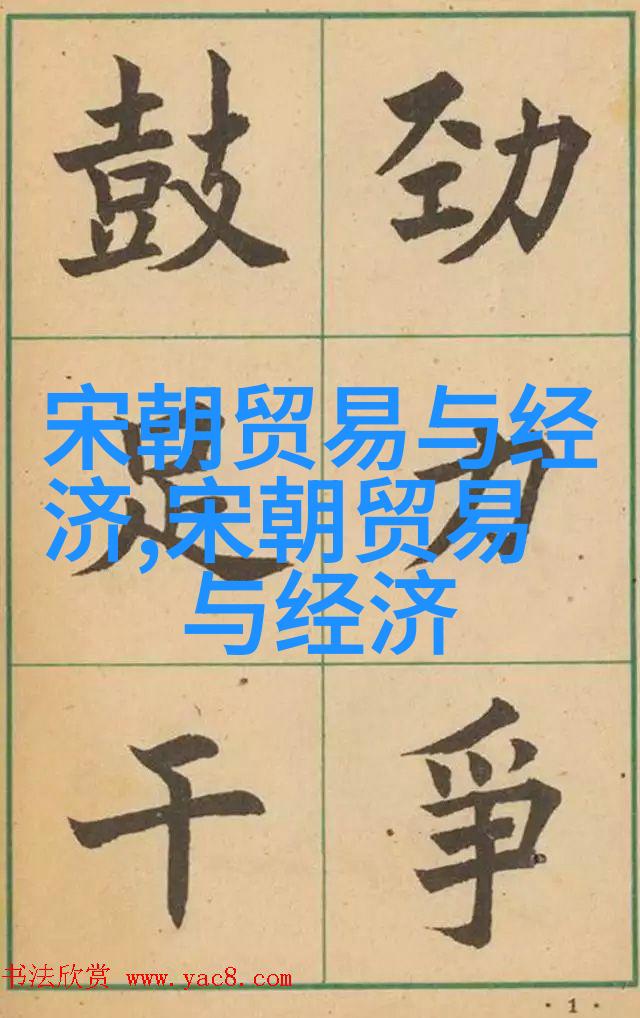 鼓劲
足力
干爭
宋朝贸易与经
济,宋朝贸易
与经济
书法欣赏 www.yac8.com
·1·